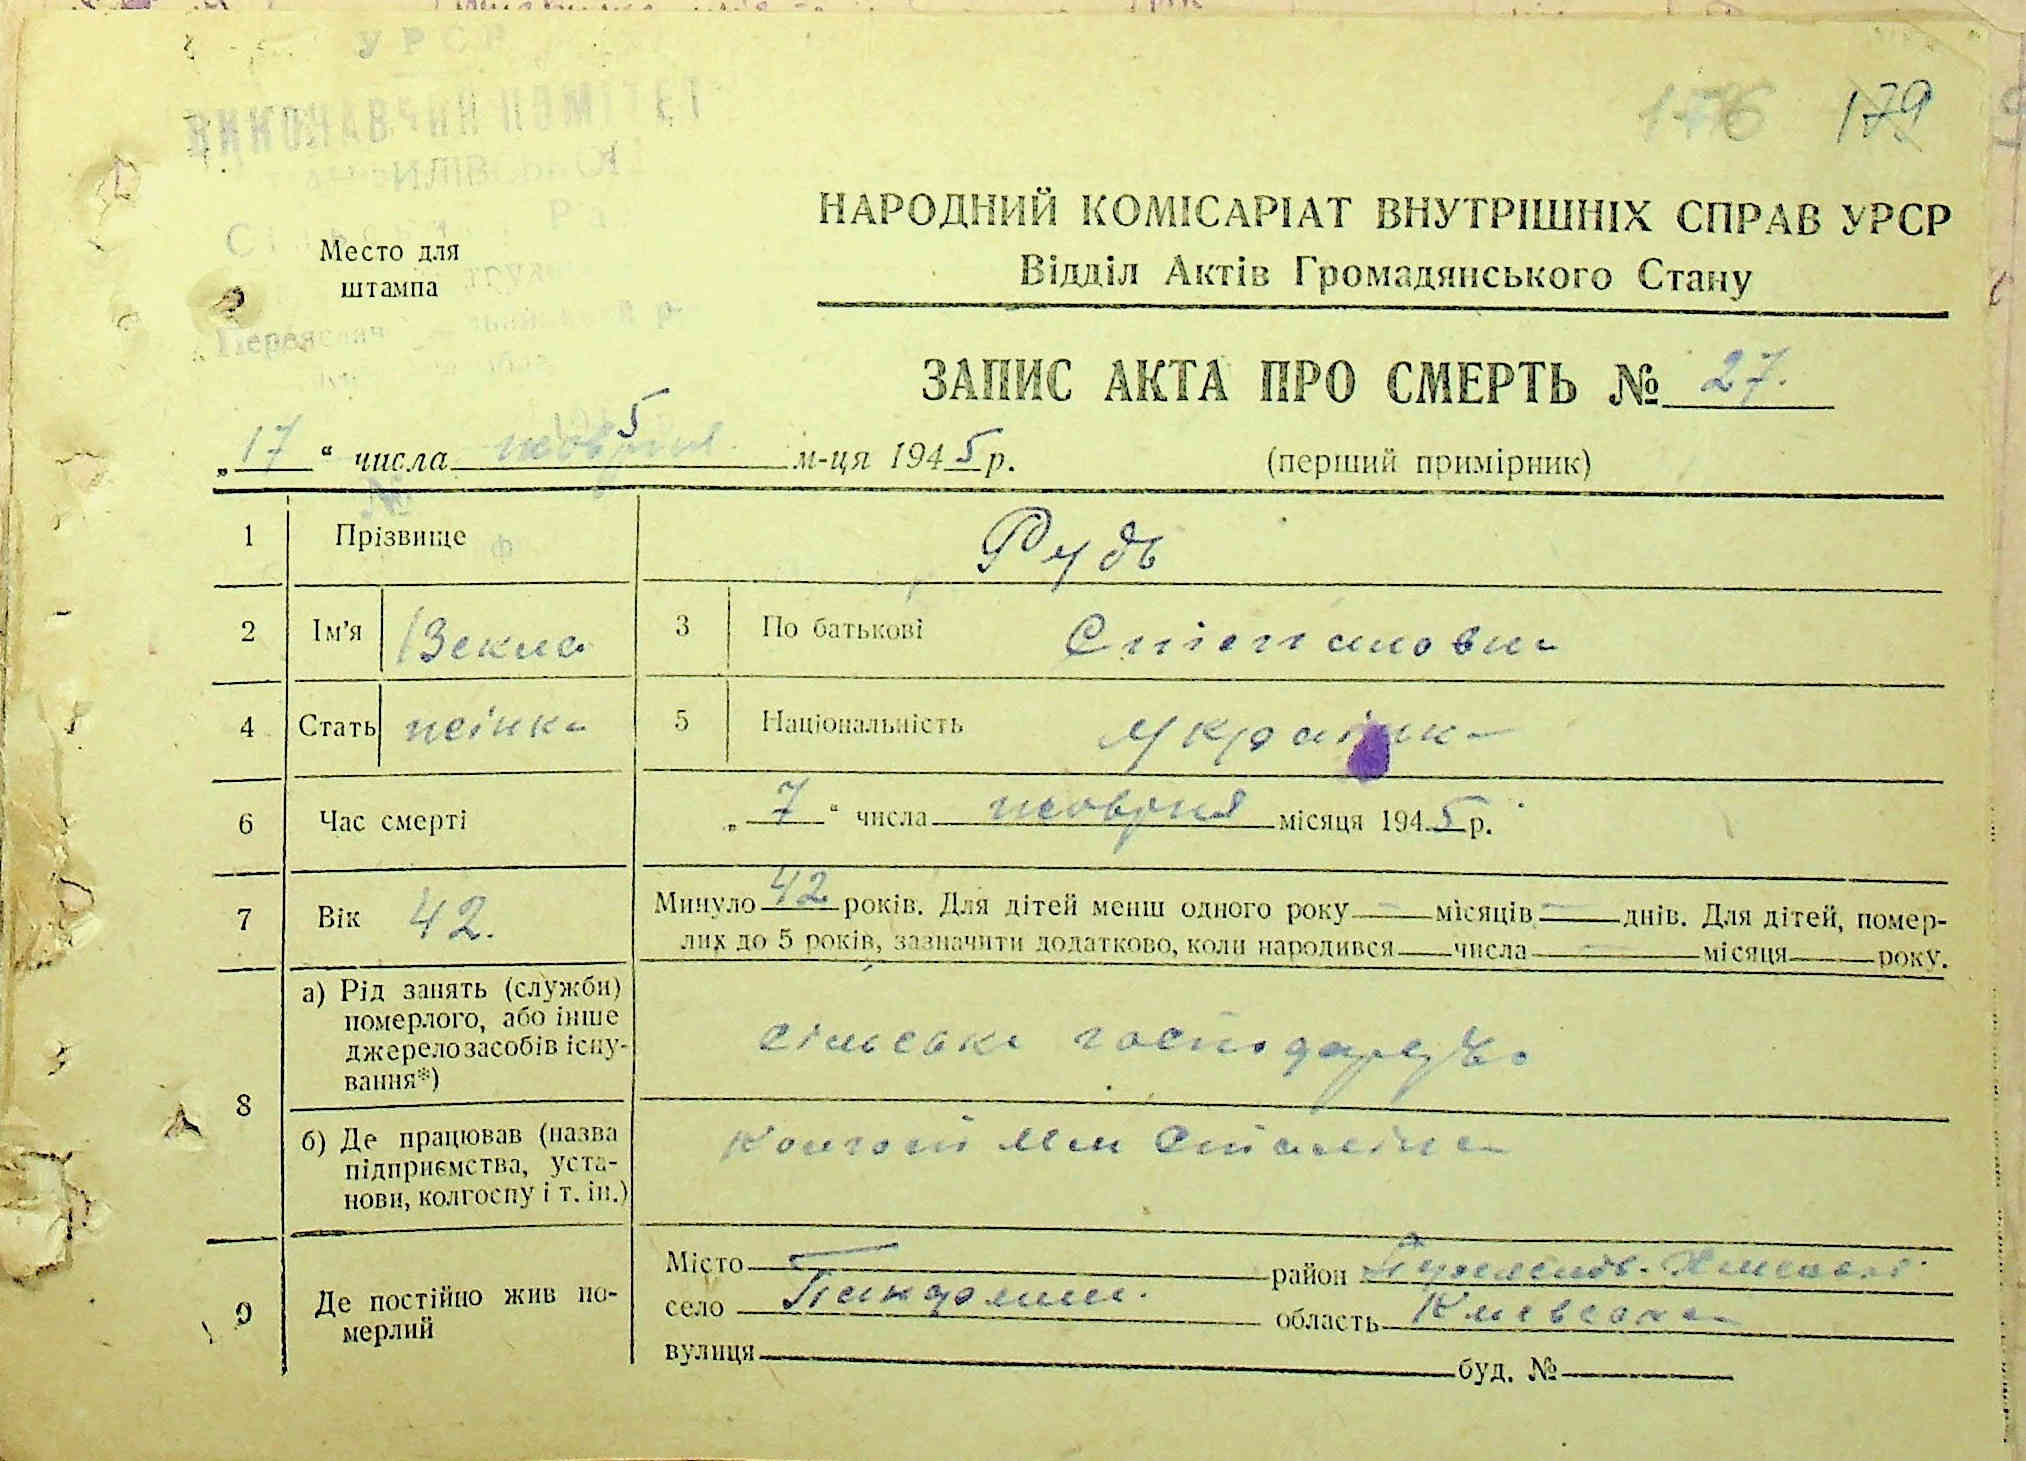 УРСР
ВИКОНАВЧИЙ КОМІТЕТ
176 179
Место для
штампа
НАРОДНИЙ КОМІСАРІАТ ВНУТРІШНІХ СПРАВ УРСР
Відділ Актів Громадянського Стану
ЗАПИС АКТА ПРО СМЕРТЬ № 27.
5
„17“ числа жовтня м-ця 1945 р.
(перший примірник)
№
1 Прізвище Рудь
2 Ім'я Векла 3 По батькові Степановна
4 Стать жінка 5 Національність Українка
6 Час смерті „7“ числа жовтня місяця 1945 р.
7 Вік 42. Минуло 42 років. Для дітей менш одного року — місяців — днів. Для дітей, помер-
лих до 5 років, зазначити додатково, коли народився числа — місяця року.
8 а) Рід занять (служби)
померлого, або інше
джерело засобів існу-
вання*)
сільське господарство
б) Де працював (назва
підприємства, уста-
нови, колгоспу і т. ін.)
Колгосп Им Сталіна
9 Де постійно жив по-
мерлий
Місто район
село область Киевска
вулиця буд. №